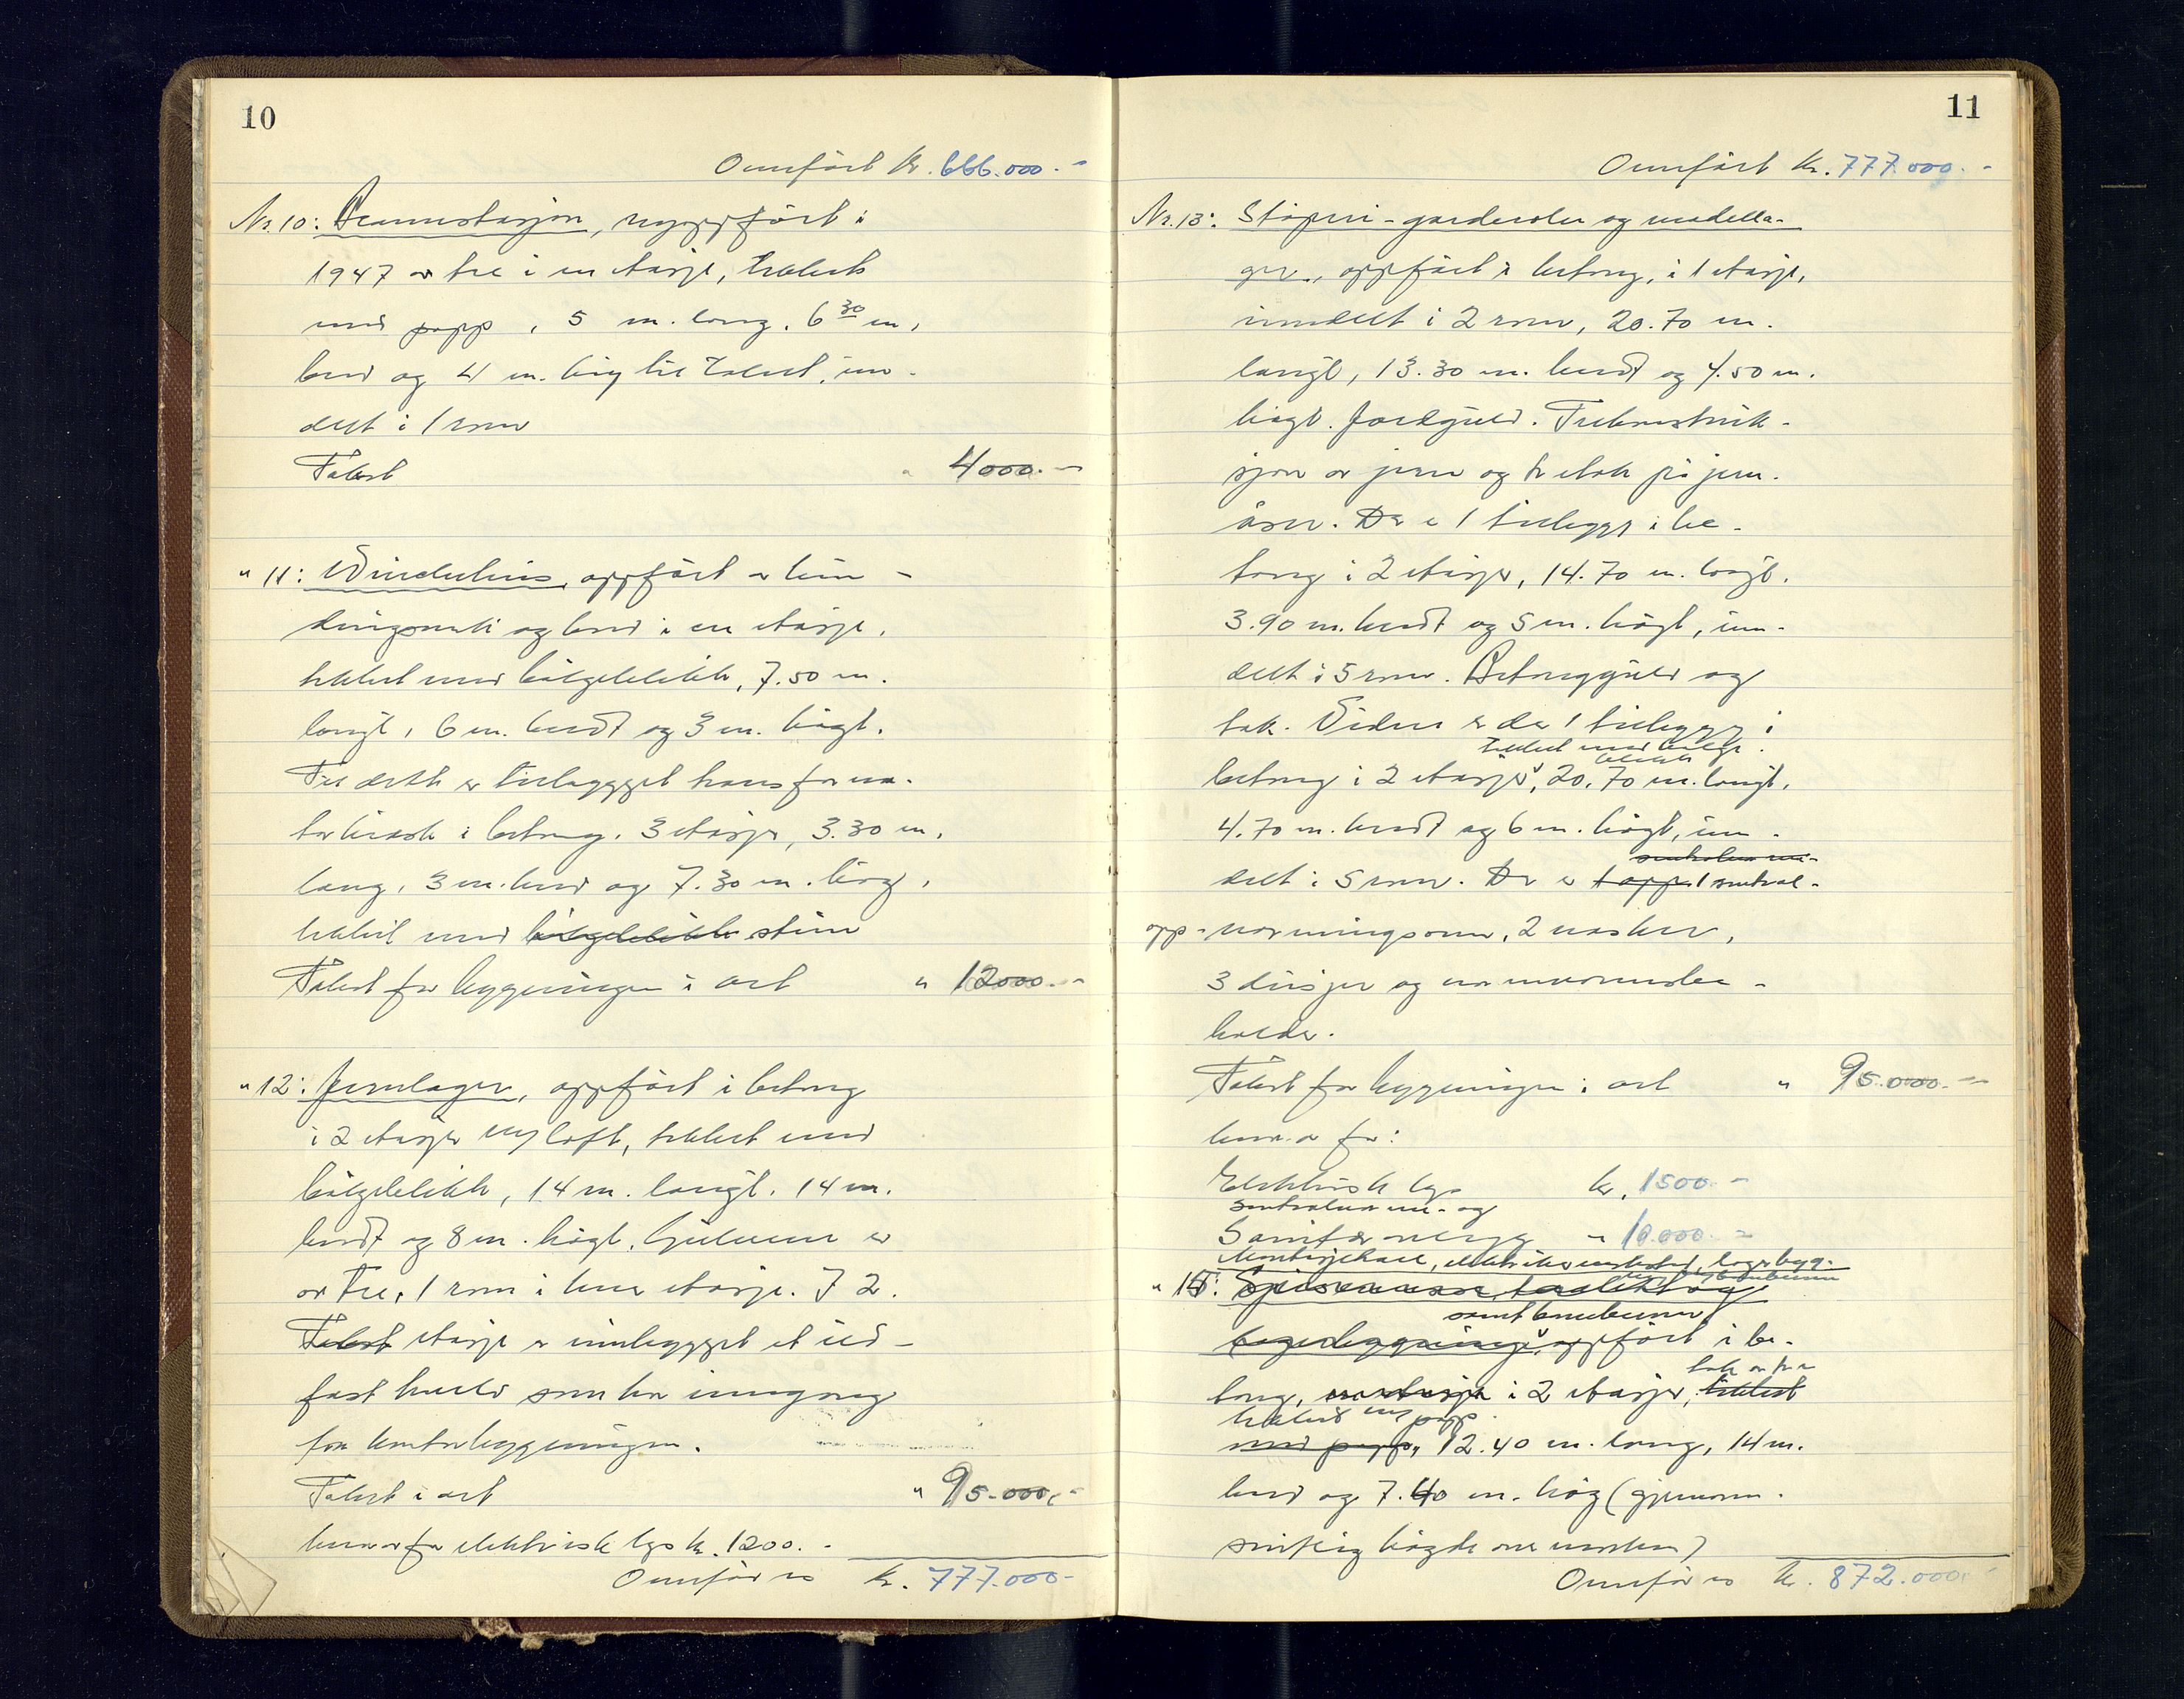 10
Overført kr. 666.000.-
Nr. 10: Brannstasjon, nyoppført i
1947 av tre i en etasje, tekket
med papp, 5 m. lang, 6 30 m.
bred og 4 m. høy til taket, inn-
delt i 1 rom
Takst " 4000.-
" 11: Vinduhus, oppført av bin-
dingsverk og bord i en etasje,
tekket med bølgeblikk, 7.50 m.
langt, 6 m. bredt og 3 m. høgt.
Til dette er tilbygget transforma-
torkiosk i betong, 3 etasjer, 3.30 m.
lang, 3 m. bred og 7.30 m. høg,
tekket med bølgeblikk stein
Takst for bygningen i alt " 12000.-
" 12: Jernlager, oppført i betong
i 2 etasjer m/loft, tekket med
bølgeblikk, 14 m. langt, 14 m.
bredt og 8 m. høgt. Gulvene er
av tre, 1 rom i hver etasje. I 2.
Takst etasje er innbygget et ild-
fast hvelv som har inngang
fra kontorbygningen.
Takst i alt " 95.000.-
herav for elektrisk lys kr. 1200.-
Overføres kr. 777.000.-
11
Overført kr. 777.000.-
Nr. 13: Støperi-garderobe og modella-
ger, oppført i betong, i 1 etasje,
inndelt i 2 rom, 20.70 m.
langt, 13.30 m. bredt og 4.50 m.
høgt. Jordgulv. Takkonstruk-
sjon av jern og tretak på jern-
åser. Der er 1 tilbygg i be-
tong i 2 etasjer, 14.70 m. langt,
3.90 m. bredt og 5 m. høgt, inn-
delt i 5 rom. Betonggulv og
tak. Videre er der 1 tilbygg i
tekket med bølge-
blikk
betong i 2 etasjer, 20.70 m. langt,
4.70 m. bredt og 6 m. høgt, inn-
delt i 5 rom. Der er 1 opp 1 sentral-
opp-varmingsovn, 2 vasker,
3 dusjer og varmvannsbe-
holder.
Takst for bygningen i alt " 95.000.-
herav for:
Elektrisk lys kr. 1500.-
sentralvarme- og
Sanitæranlegg " 10.000.-
Montasjehall, elektrikerverksted, lagerbygg-
" 14: Spisemesse,
samt
lagerbygning, oppført i be-
tak av tre
tong, i 2 etasjer, tekket
tekket m/ papp
med papp, 12.40 m. lang, 14 m.
bred og 7.40 m. høg (gjennom-
snitlig høgde over marken)
Overføres kr. 872.000.-